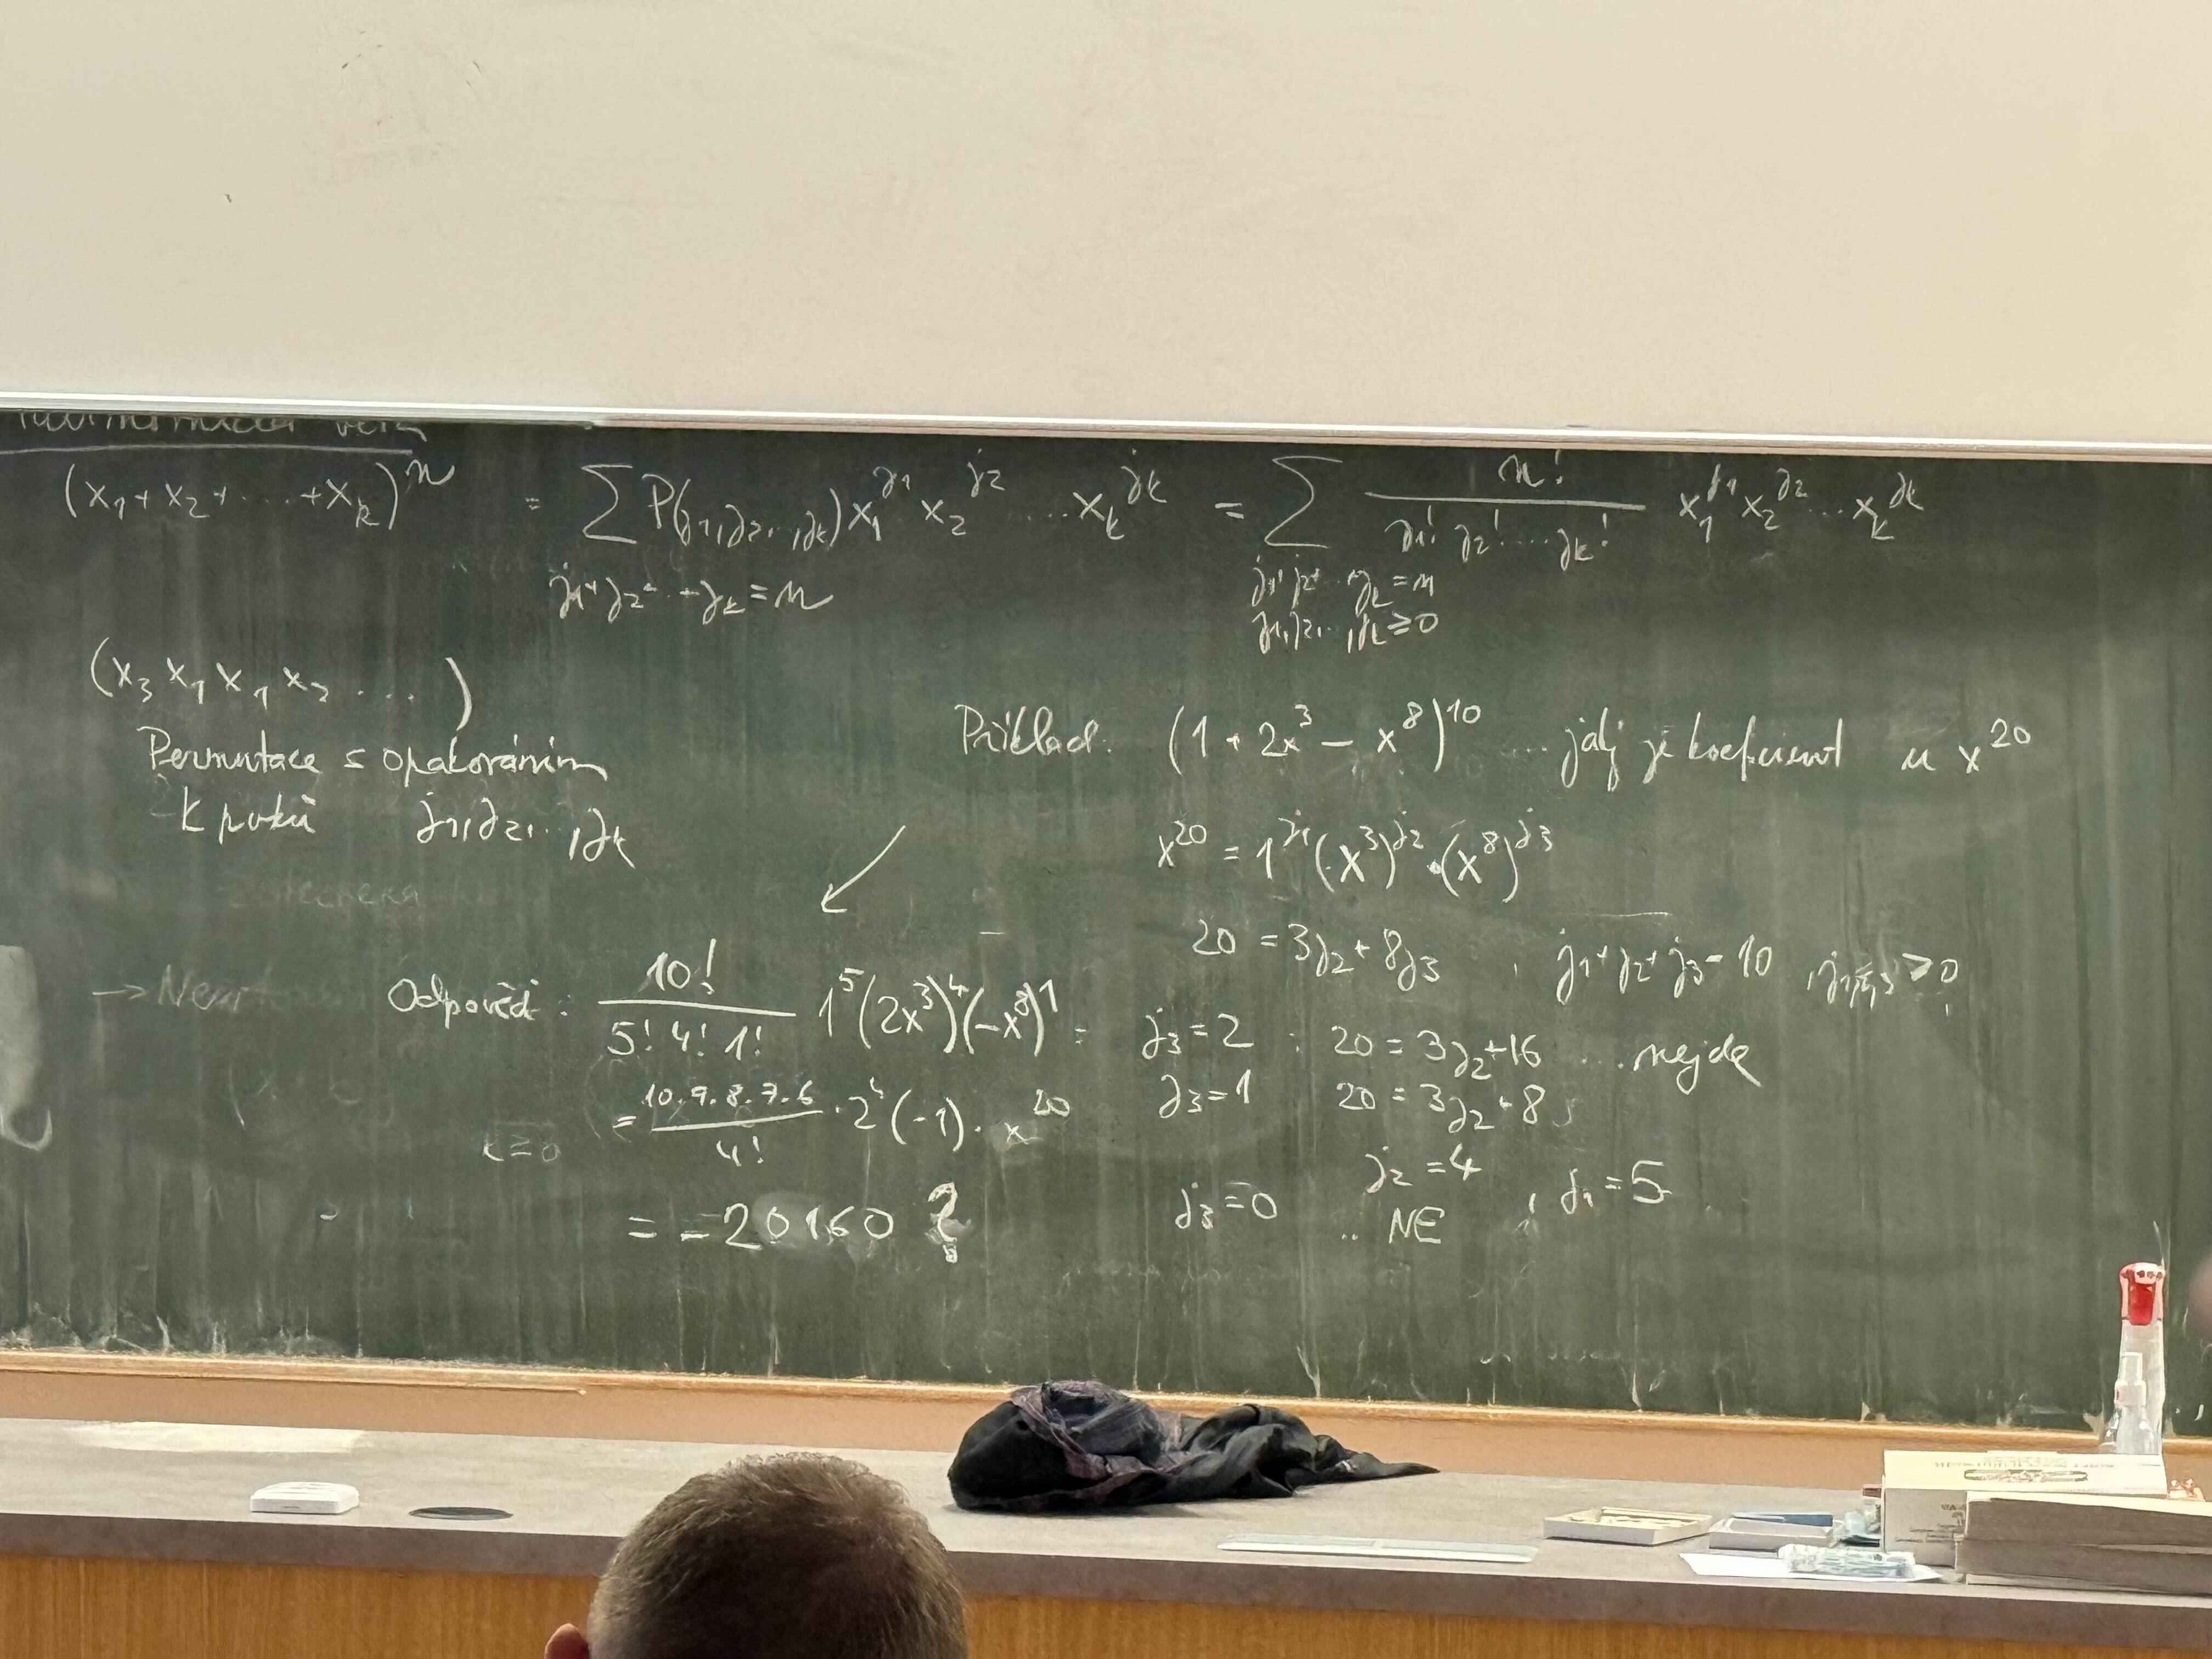 (x₁+x₂+...+x_k)ⁿ = ∑ P(j₁,j₂..,j_k) x₁^j₁ x₂^j₂ .... x_k^j_k = ∑ n! / (j₁! j₂! .... j_k!) x₁^j₁ x₂^j₂ ... x_k^j_k
j₁+j₂+..+j_k = n
j₁+j₂+..+j_k = n
j₁,j₂,..,j_k ≥ 0
(x₃ x₁ x₁ x₂ ....)
Permutace s opakováním
k prvků j₁,j₂,..,j_k
Příklad. (1 + 2x³ − x⁸)¹⁰ ... jaký je koeficient u x²⁰
x²⁰ = 1^j₁ (x³)^j₂ · (x⁸)^j₃
20 = 3j₂ + 8j₃ , j₁+j₂+j₃ = 10 , j₁,j₂,j₃ ≥ 0
j₃ = 2 : 20 = 3j₂+16 ... nejde
j₃ = 1 20 = 3j₂+8
j₂ = 4 , j₁ = 5
j₃ = 0 .. NE
Odpověď : 10! / (5! 4! 1!) 1⁵ (2x³)⁴ (−x⁸)¹ =
= (10.9.8.7.6 / 4!) · 2⁴ (−1) · x²⁰
= −20160 ?
k ≥ 0